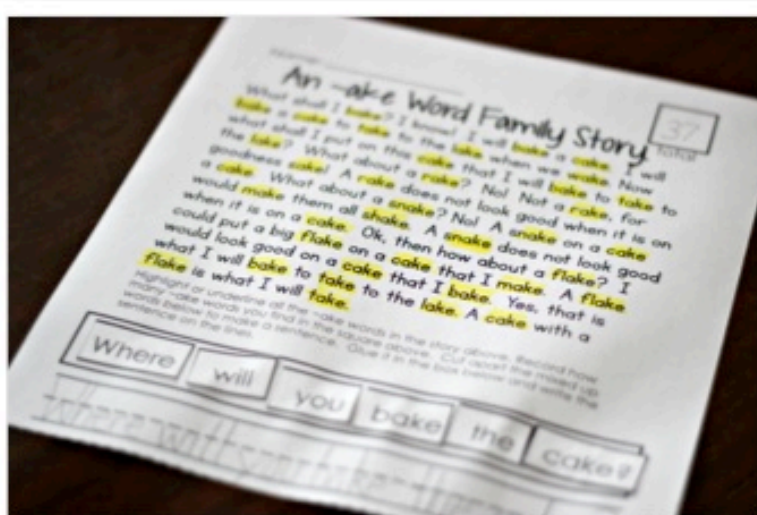 Name:
An -ake Word Family Story
37
total
What shall I bake? I know! I will bake a cake. I will
bake a cake to take to the lake when we wake. Now
what shall I put on this cake that I will bake to take to
the lake? What about a rake? No! Not a rake, for
goodness sake! A rake does not look good when it is on
a cake. What about a snake? No! A snake on a cake
would make them all shake. A snake does not look good
when it is on a cake. Ok, then how about a flake? I
could put a big flake on a cake that I make. A flake
would look good on a cake that I bake. Yes, that is
what I will bake to take to the lake. A cake with a
flake is what I will take.
Highlight or underline all the -ake words in the story above. Record how
many -ake words you find in the square above. Cut apart the mixed up
words below to make a sentence. Glue it in the box below and write the
sentence on the lines.
Where will you bake the cake?
Where will you